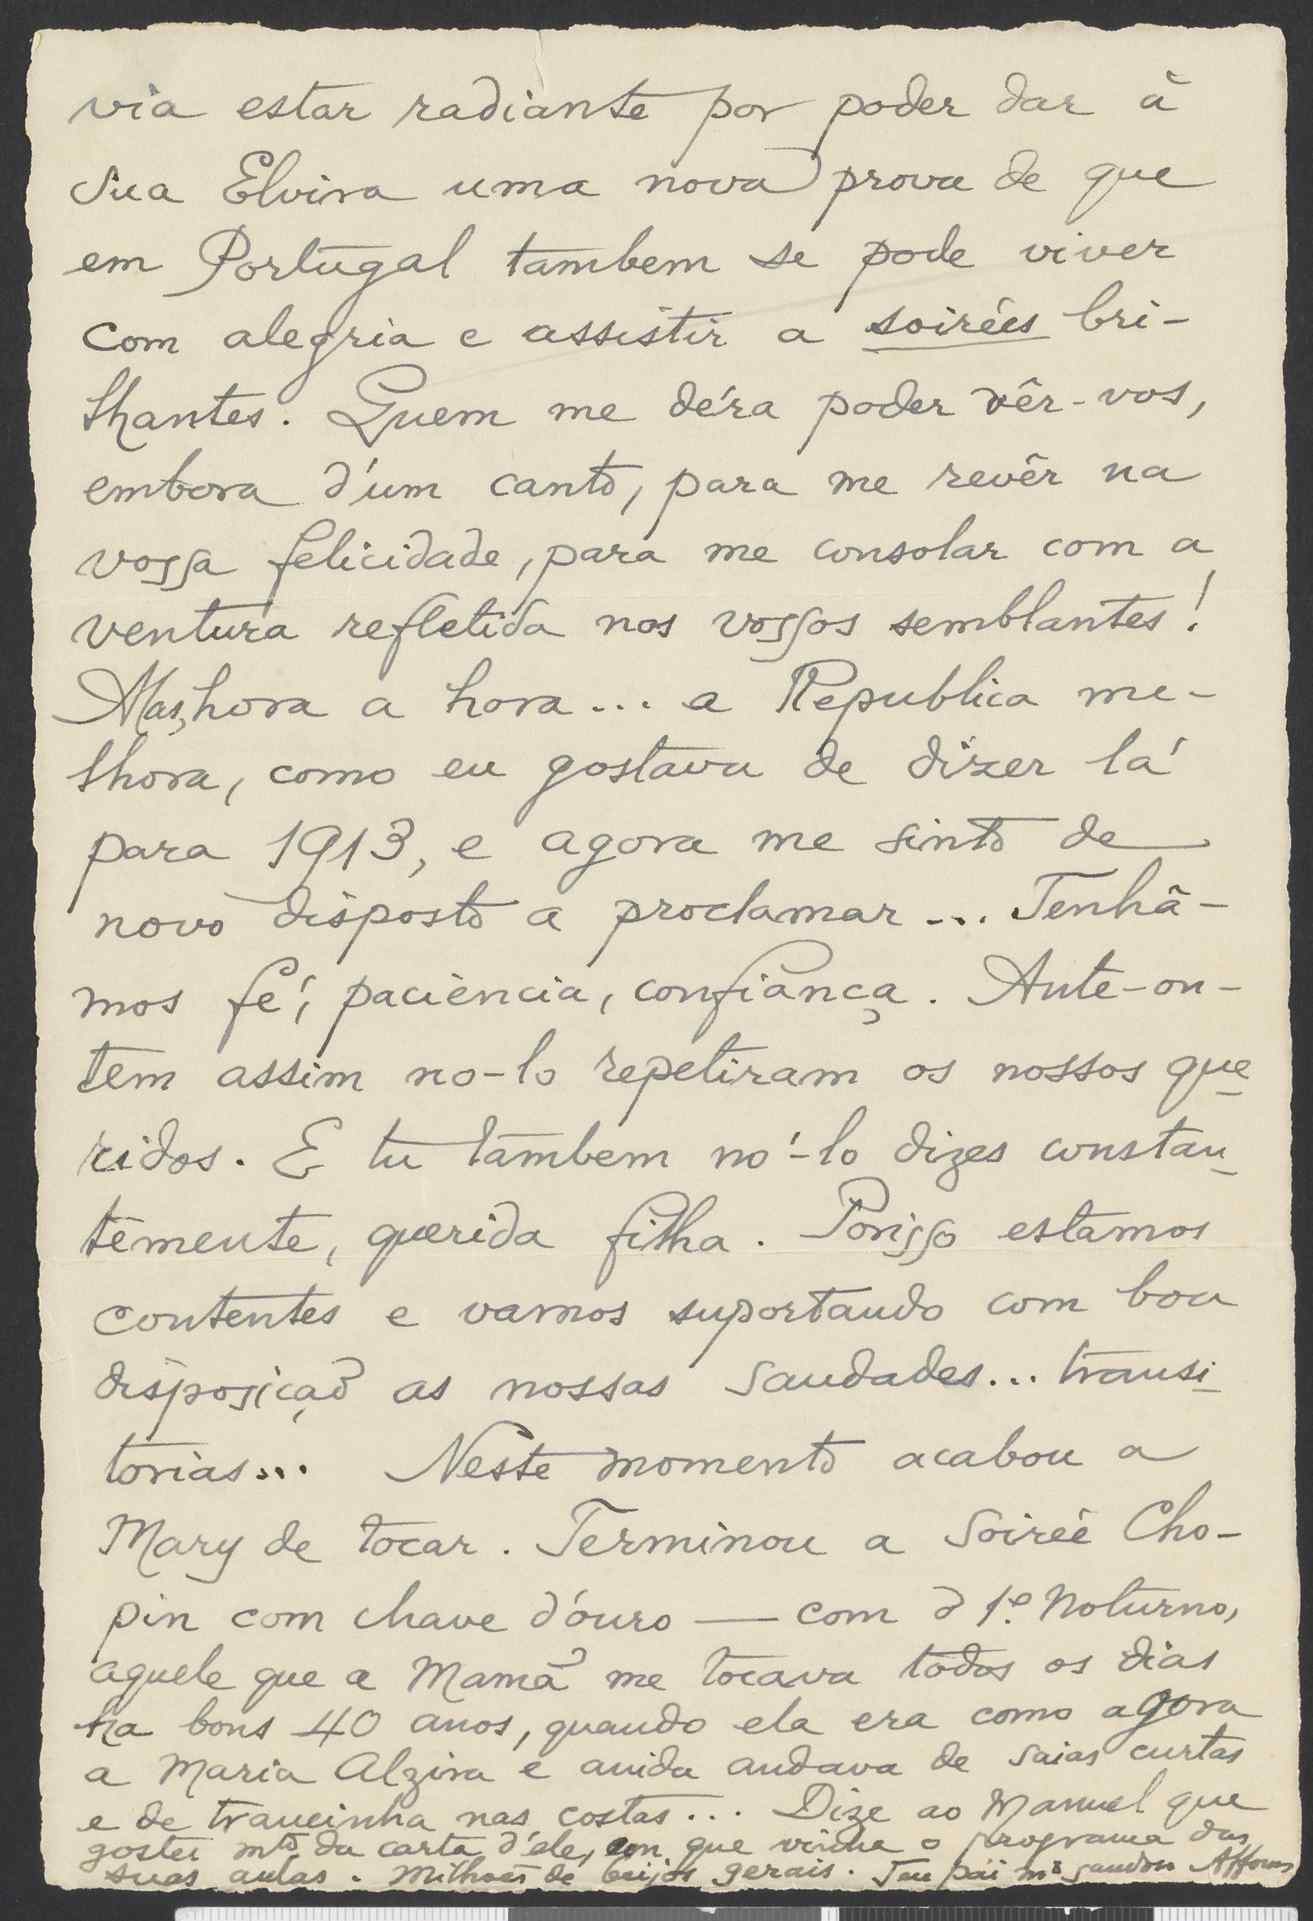 via estar radiante por poder dar á
sua Elvira uma nova prova de que
em Portugal tambem se pode viver
com alegria e assistir a soirées bri-
lhantes. Quem me déra poder vêr-vos,
embora d'um canto, para me revêr na
vossa felicidade, para me consolar com a
ventura refletida nos vossos semblantes!
Mas, hora a hora... a Republica me-
lhora, como eu gostava de dizer lá
para 1913, e agora me sinto de
novo disposto a proclamar... Tenhâ-
mos fé, paciencia, confiança. Ante-on-
tem assim no-lo repetiram os nossos que
ridos. E tu tambem nó-lo dizes constan_
temente, querida filha. Porisso estamos
contentes e vamos suportando com boa
disposição as nossas saudades... transi_
torias... Neste momento acabou a
Mary de tocar. Terminou a Soirée Cho-
pin com chave d'ouro — com o 1º Noturno,
aquele que a Mamã me tocava todos os dias
ha bons 40 anos, quando ela era como agora
a Maria Alzira e ainda andava de saias curtas
e de trancinha nas costas... Dize ao Manuel que
gostei mtº da carta d'ele, em que vinha o programa das
suas aulas. Milhoes de beijos gerais. Teu pai mtº saudoso Affonso